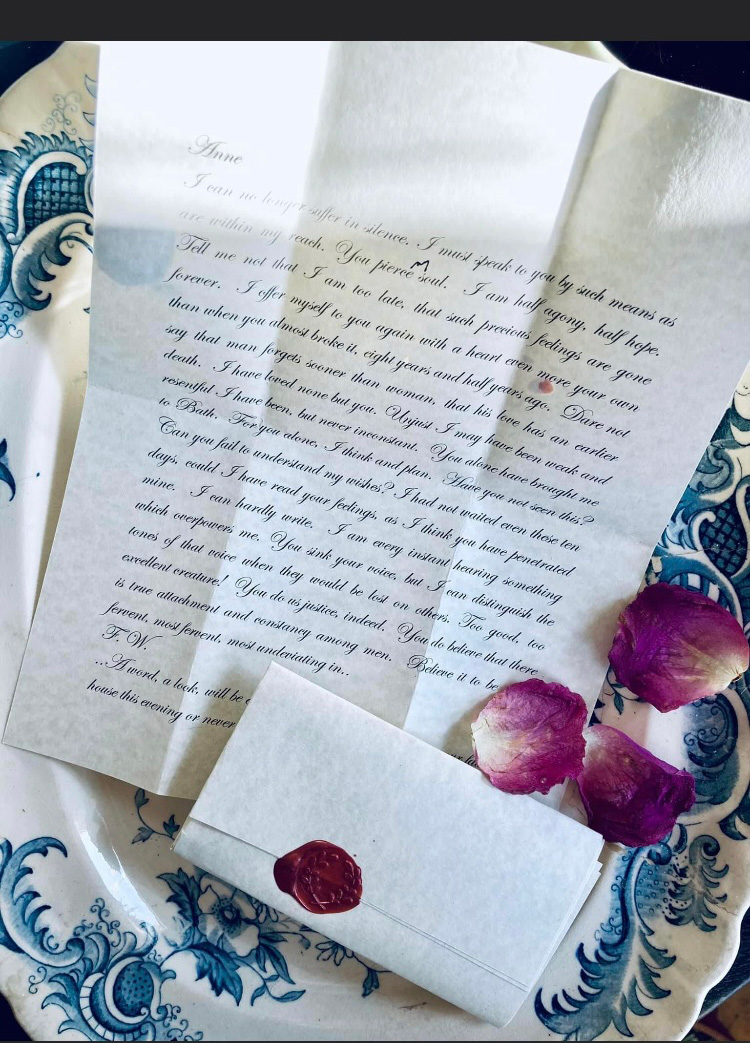 Anne
I can no longer suffer in silence. I must speak to you by such means as
are within my reach. You pierce M soul. I am half agony, half hope.
Tell me not that I am too late, that such precious feelings are gone
forever. I offer myself to you again with a heart even more your own
than when you almost broke it, eight years and half years ago. Dare not
say that man forgets sooner than woman, that his love has an earlier
death. I have loved none but you. Unjust I may have been weak and
resentful I have been, but never inconstant. You alone have brought me
to Bath. For you alone, I think and plan. Have you not seen this?
Can you fail to understand my wishes? I had not waited even these ten
days, could I have read your feelings, as I think you have penetrated
mine. I can hardly write. I am every instant hearing something
which overpowers me. You sink your voice, but I can distinguish the
tones of that voice when they would be lost on others. Too good, too
excellent creature! You do us justice, indeed. You do believe that there
is true attachment and constancy among men. Believe it to be
fervent, most fervent, most undeviating in..
F. W.
..A word, a look, will be
house this evening or never